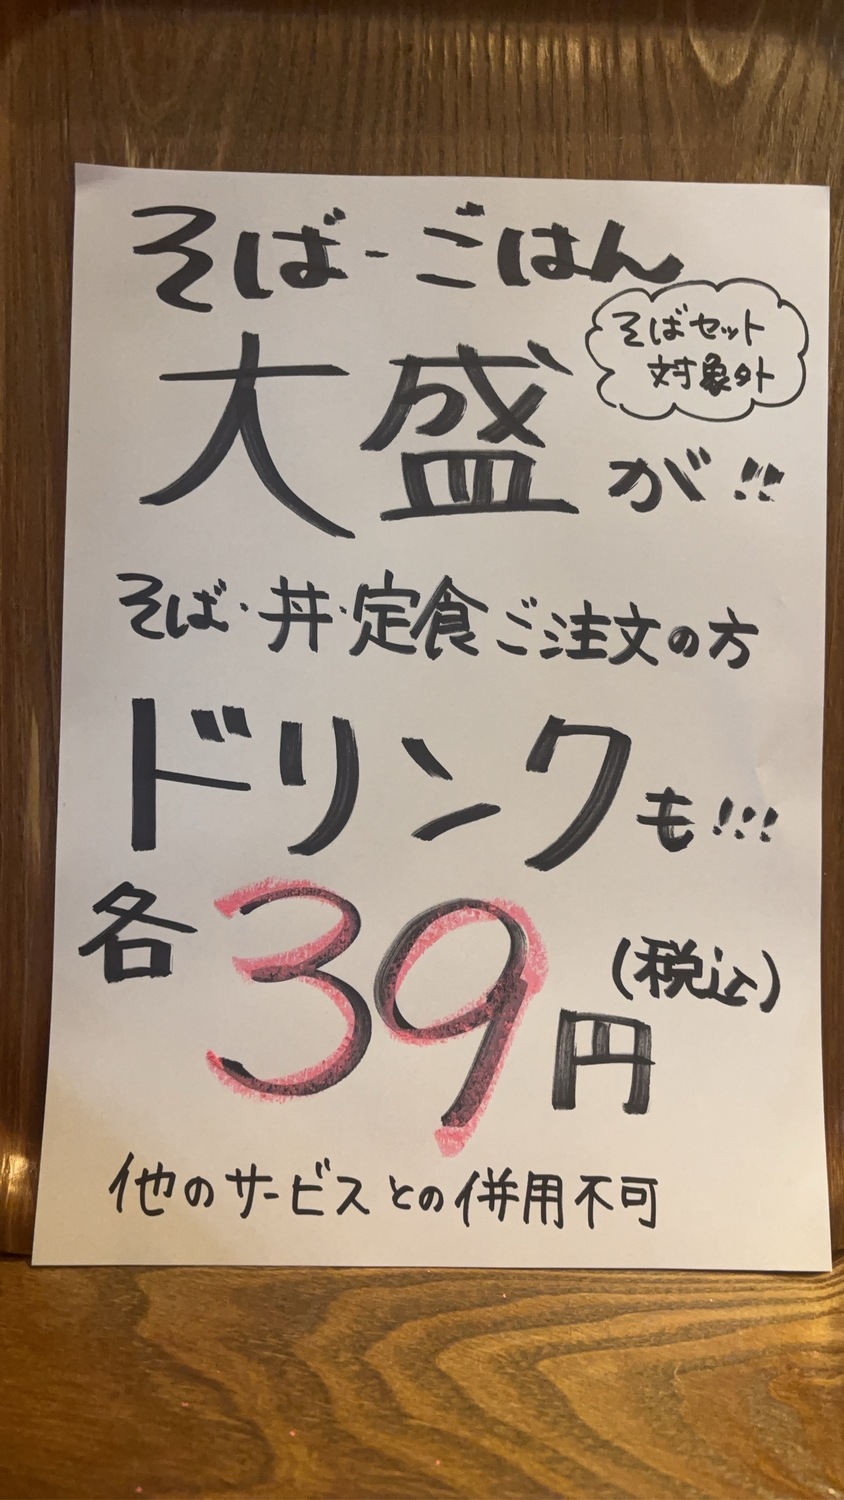 そば・ごはん
そばセット
対象外
大盛が!!
そば・丼・定食ご注文の方
ドリンクも!!!
各39円(税込)
他のサービスとの併用不可